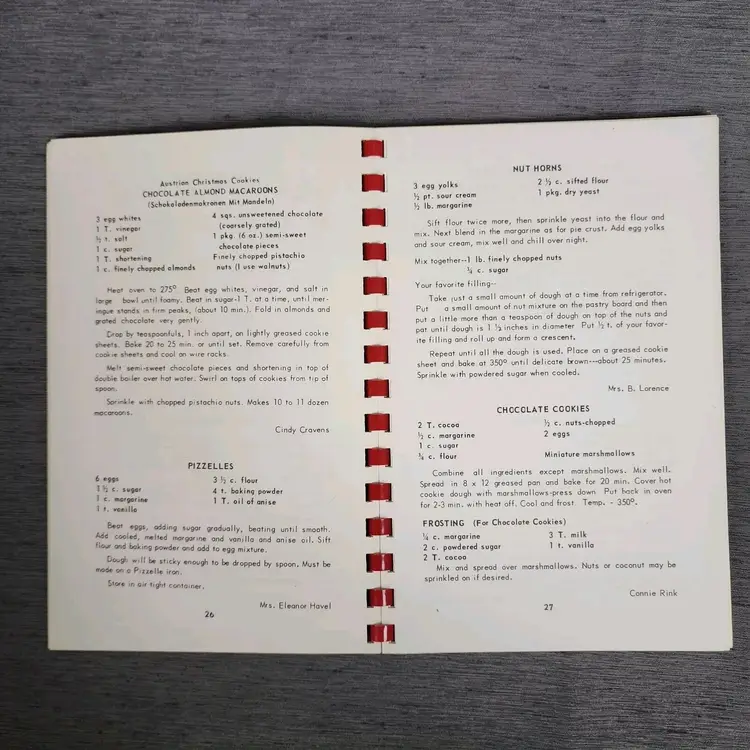 Austrian Christmas Cookies
CHOCOLATE ALMOND MACAROONS
(Schokoladenmakronen Mit Mandeln)
3 egg whites
1 T. vinegar
½ t. salt
1 c. sugar
1 T. shortening
1 c. finely chopped almonds
4 sqs. unsweetened chocolate
(coarsely grated)
1 pkg. (6 oz.) semi-sweet
chocolate pieces
Finely chopped pistachio
nuts (I use walnuts)
Heat oven to 275º Beat egg whites, vinegar, and salt in
large bowl until foamy. Beat in sugar-1 T. at a time, until mer-
ingue stands in firm peaks, (about 10 min.). Fold in almonds and
grated chocolate very gently.
Drop by teaspoonfuls, 1 inch apart, on lightly greased cookie
sheets. Bake 20 to 25 min. or until set. Remove carefully from
cookie sheets and cool on wire racks.
Melt semi-sweet chocolate pieces and shortening in top of
double boiler over hot water. Swirl on tops of cookies from tip of
spoon.
Sprinkle with chopped pistachio nuts. Makes 10 to 11 dozen
macaroons.
Cindy Cravens
PIZZELLES
6 eggs
1 ½ c. sugar
1 c. margarine
1 t. vanilla
3 ½ c. flour
4 t. baking powder
1 T. oil of anise
Beat eggs, adding sugar gradually, beating until smooth.
Add cooled, melted margarine and vanilla and anise oil. Sift
flour and baking powder and add to egg mixture.
Dough will be sticky enough to be dropped by spoon. Must be
made on a Pizzelle iron.
Store in air-tight container.
Mrs. Eleanor Havel
26
NUT HORNS
3 egg yolks
½ pt. sour cream
½ lb. margarine
2 ½ c. sifted flour
1 pkg. dry yeast
Sift flour twice more, then sprinkle yeast into the flour and
mix. Next blend in the margarine as for pie crust. Add egg yolks
and sour cream, mix well and chill over night.
Mix together--1 lb. finely chopped nuts
¾ c. sugar
Your favorite filling--
Take just a small amount of dough at a time from refrigerator.
Put a small amount of nut mixture on the pastry board and then
put a little more than a teaspoon of dough on top of the nuts and
pat until dough is 1 ½ inches in diameter Put ½ t. of your favor-
ite filling and roll up and form a crescent.
Repeat until all the dough is used. Place on a greased cookie
sheet and bake at 350º until delicate brown---about 25 minutes.
Sprinkle with powdered sugar when cooled.
Mrs. B. Lorence
CHOCOLATE COOKIES
2 T. cocoa
½ c. margarine
1 c. sugar
¾ c. flour
½ c. nuts-chopped
2 eggs
Miniature marshmallows
Combine all ingredients except marshmallows. Mix well.
Spread in 8 x 12 greased pan and bake for 20 min. Cover hot
cookie dough with marshmallows-press down Put back in oven
for 2-3 min. with heat off. Cool and frost. Temp. - 350º.
FROSTING (For Chocolate Cookies)
¼ c. margarine
2 c. powdered sugar
2 T. cocoa
3 T. milk
1 t. vanilla
Mix and spread over marshmallows. Nuts or coconut may be
sprinkled on if desired.
Connie Rink
27